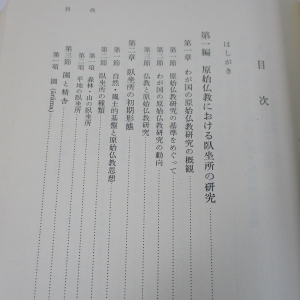 目次
はしがき
第一編 原始仏教における臥坐所の研究
第一章 わが国の原始仏教研究の概観
第一節 原始仏教研究の基準をめぐって
第二節 わが国の原始仏教研究の動向
第三節 仏教と原始仏教研究
第二章 臥坐所の初期形態
第一節 自然・風土的基盤と原始仏教思想
第二節 臥坐所の種類
第一項 森林・山の臥坐所
第二項 平地の臥坐所
第三節 園と精舎
第一項 園 (ārāma)
目次